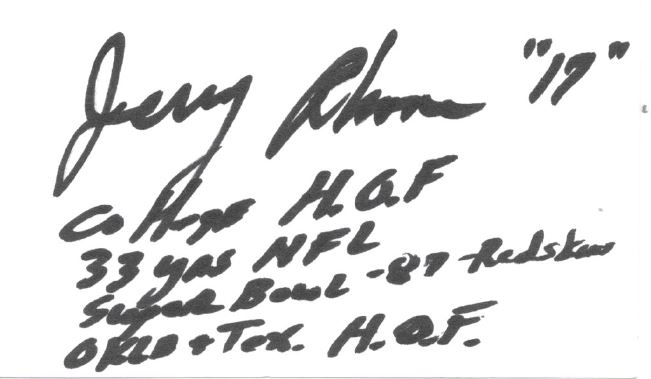 Jerry Rhome "17"
College H.O.F
33 yrs NFL
Super Bowl - 87 - Redskins
OKLA + Tex. H.O.F.